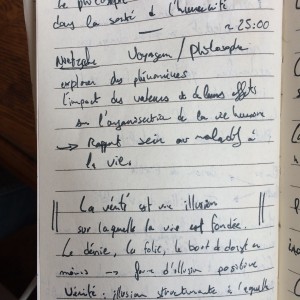 le philosophe
dans la santé de l'humanité
~ 25:00
Nietzsche Voyageur / philosophe
explorer des phénomènes
l'impact des valeurs et de leurs effets
sur l'organisation de la vie humaine
→ Rapport sain ou maladif à
la vie.
La vérité est une illusion
sur laquelle la vie est fondée.
Le génie, la folie, le
→ d'illusion positive
Vérité : illusion structurante à laquelle